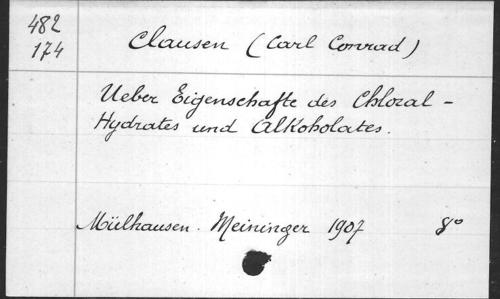 482
174
Clausen (Carl Conrad)
Ueber Eigenschafte des Chloral-
Hydrates und Alkoholates.
Mülhausen. Meininger 1907 8°